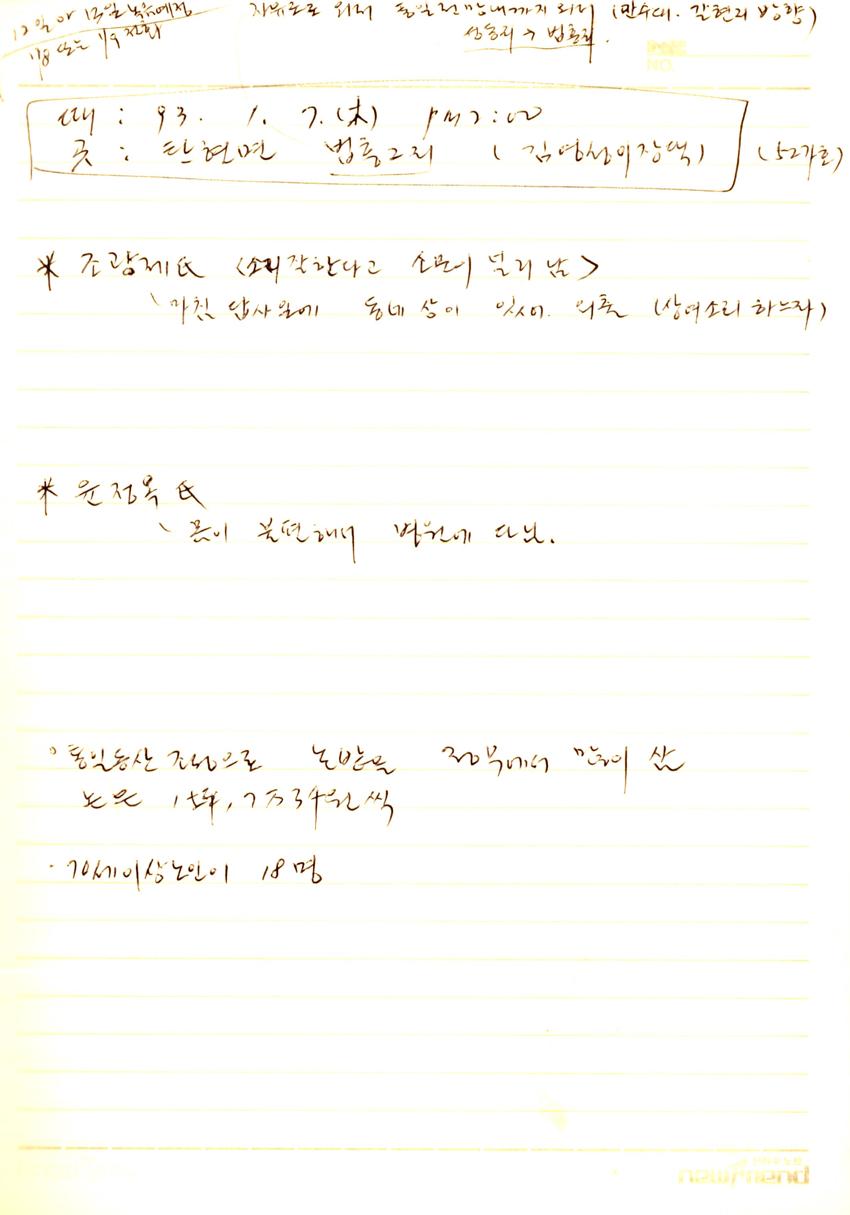 12일이나 13일 녹음예정
1/8 또는 1/9 전화
자유로로 와서 통일전망대까지 와서 (만수대. 갈현리 방향)
성동리 → 법흥리.
때 : 93. 1. 7. (木) PM 7:00
곳 : 탄현면 법흥2리 (김영상이장댁) (52가호)
* 조광제氏 <소리잘한다고 소문이 널리 남>
마침 답사일에 동네 상이 있어. 외출 (상여소리 하느라)
* 윤정옥氏
몸이 불편해서 병원에 다님.
◦ 통일동산 조성으로 논밭을 정부에서 많이 삼
논은 1坪, 7만3천원씩
· 70세이상노인이 18명
newfriend